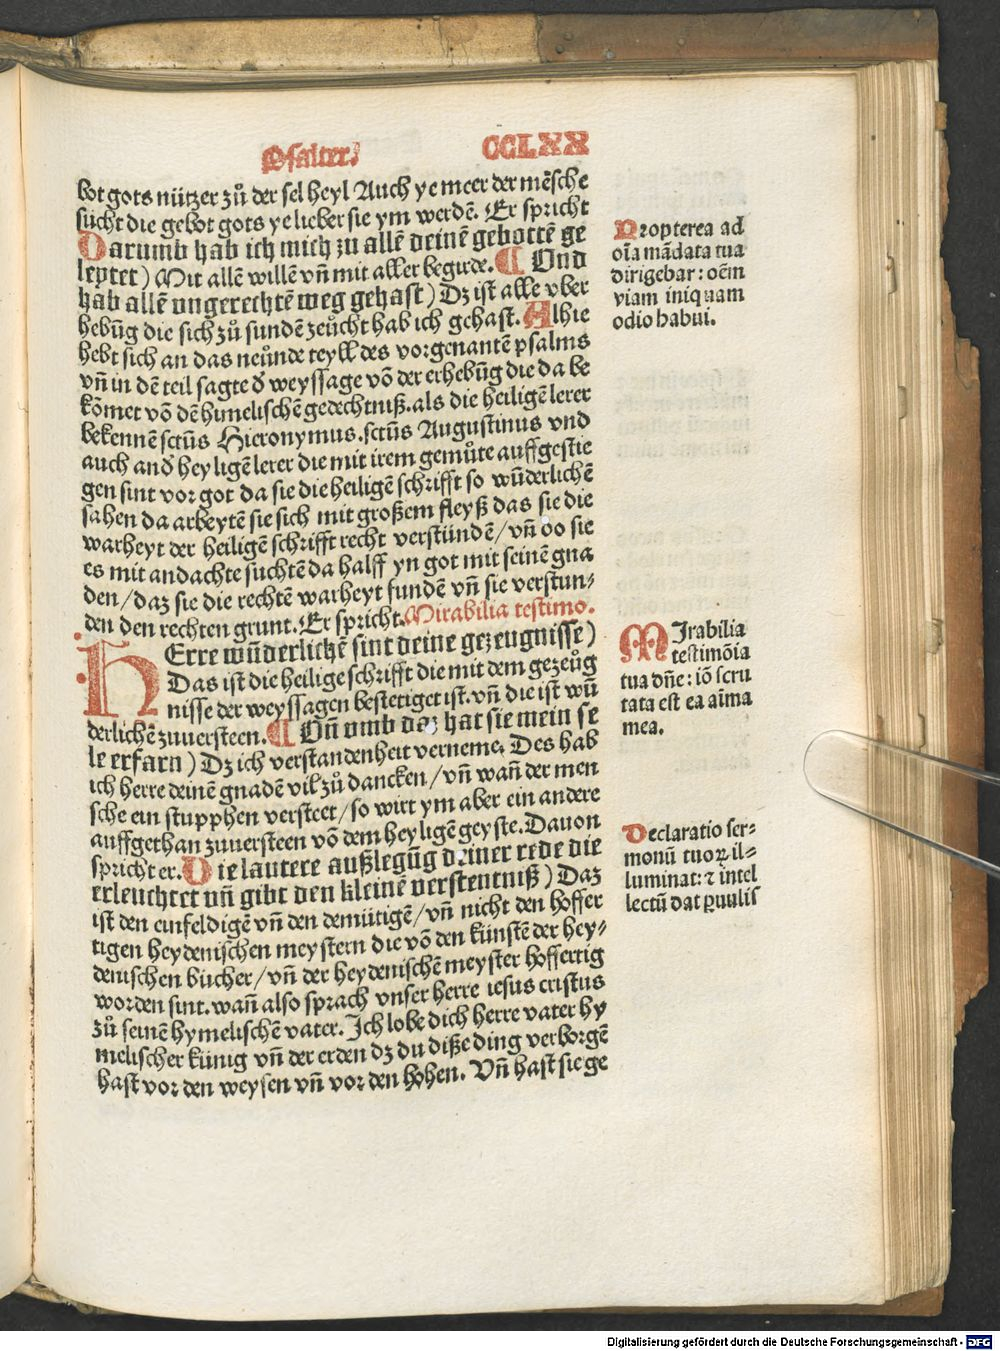 Psalter.
CCLXX
bot gots nützer zů der sel heyl Auch ye meer der mēsche
sucht die gebot gots ye lieber sie ym werdē. Er spricht
Darumb hab ich mich zu allē deinē gebottē ge
leytet) Mit allē willē vñ mit aller begirde. ¶ Vnd
hab allē vngerechtē weg gehast) Dz ist alle vber
hebūg die sich zů sundē zeücht hab ich gehast. Alhie
hebt sich an das neůnde teyll des vorgenantē psalms
vñ in dē teil sagte d̕ weyssage vō der erhebūg die da be
kōmet vō dē himelischē gedechtniß. als die heiligē lerer
bekennē sctūs Hieronymus. sctūs Augustinus vnd
auch and̕ heyligē lerer die mit irem gemůte auffgestie
gen sint vor got da sie die heiligē schrifft so wūderlichē
sahen da arbeytē sie sich mit großem fleyß das sie die
warheyt der heiligē schrifft recht verstündē/ vñ do sie
es mit andachte suchtē da halff yn got mit seinē gna
den/ daz sie die rechtē warheyt fundē vñ sie verstun-
den den rechten grunt. Er spricht. Mirabilia testimo.
HErre wūderlichē sint deine gezeugnisse)
Das ist die heilige schrifft die mit dem gezeůg
nisse der weyssagen bestetiget ist. vñ die ist wū
derlichē zuuersteen. ¶ Vñ vmb daz hat sie mein se
le erfarn) Dz ich verstandenheit verneme. Des hab
ich herre deinē gnadē vil zů dancken/ vñ wañ der men
sche ein stupphen versteet/ so wirt ym aber ein andere
auffgethan zuuersteen vō dem heyligē geyste. Dauon
spricht er. Die lautere außlegūg deiner rede die
erleuchtet vñ gibt den kleinē verstentniß) Daz
ist den einfeldigē vñ den demütigē/ vñ nicht den hoffer
tigen heydenischen meystern die vō den künstē der hey-
denischen bücher/ vñ der heydenischē meyster hoffertig
worden sint. wañ also sprach vnser herre iesus cristus
zů seinē hymelischē vater. Ich lobe dich herre vater hy
melischer künig vñ der erden dz du diße ding verborgē
hast vor den weysen vñ vor den hohen. Vñ hast sie ge
Propterea ad
oīa mādata tua
dirigebar: oēm
viam iniquam
odio habui.
MIrabilia
testimōia
tua dñe: iō scru
tata est ea aīma
mea.
Declaratio ser-
monū tuoꝝ il-
luminat: ⁊ intel
lectū dat ꝑuulis
Digitalisierung gefördert durch die Deutsche Forschungsgemeinschaft - DFG